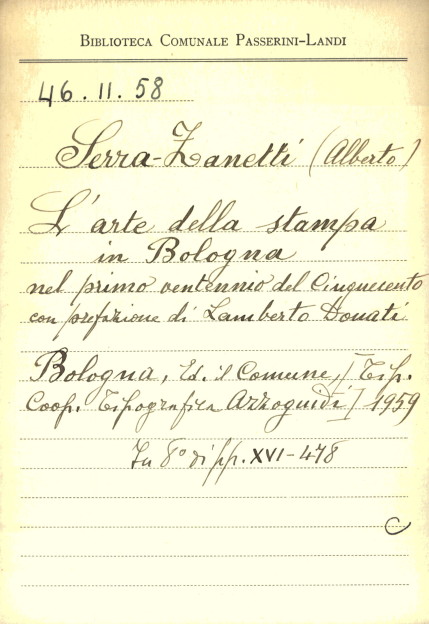 BIBLIOTECA COMUNALE PASSERINI-LANDI
46.11.58
Serra-Zanetti (Alberto)
L'arte della stampa
in Bologna
nel primo ventennio del Cinquecento
con prefazione di Lamberto Donati
Bologna, Ed. il Comune, [Tip.
Coop. Tipografica Azzoguidi] 1959
In 8° di pp. XVI-478
C